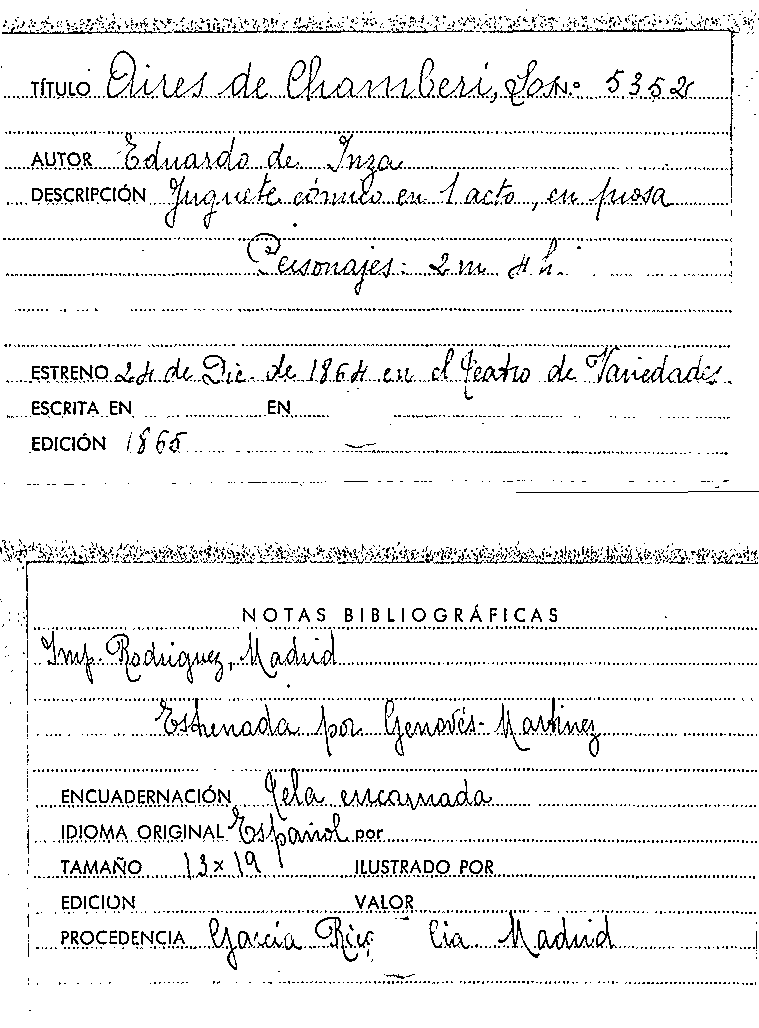 TÍTULO Aires de Chamberí, Los N.º 5352
AUTOR Eduardo de Inza
DESCRIPCIÓN Juguete cómico en 1 acto, en prosa
Personajes: 2 m 4 h.
ESTRENO 24 de Dic. de 1864 en el teatro de Variedades.
ESCRITA EN EN
EDICIÓN 1865
NOTAS BIBLIOGRÁFICAS
Imp. Rodriguez, Madrid
Estrenada por Genovés-Martinez
ENCUADERNACIÓN Tela encarnada
IDIOMA ORIGINAL Español por
TAMAÑO 13 x 19 ILUSTRADO POR
EDICION VALOR
PROCEDENCIA García Rico Cia. Madrid